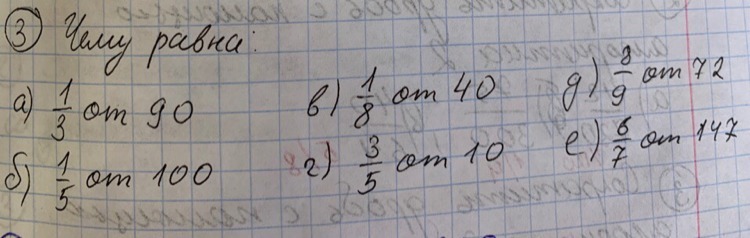 ③ Чему равна:
а) 1/3 от 90 в) 1/8 от 40 д) 8/9 от 72
б) 1/5 от 100 г) 3/5 от 10 е) 6/7 от 147